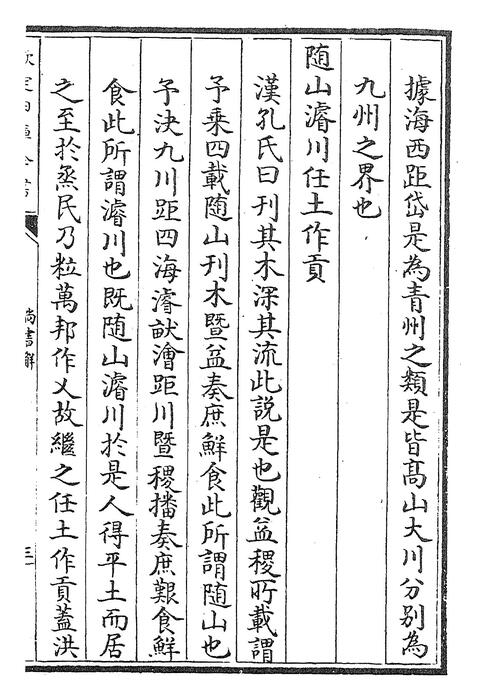 據海西距岱是為青州之類是皆髙山大川分别為
九州之界也
随山濬川任土作貢
漢孔氏曰刊其木深其流此説是也觀益稷所載謂
予乘四載随山刊木暨益奏庶鮮食此所謂随山也
予決九川距四海濬畎澮距川暨稷播奏庶艱食鮮
食此所謂濬川也既随山濬川於是人得平土而居
之至於烝民乃粒萬邦作乂故繼之任土作貢蓋洪
欽定四庫全書
尚書解
三